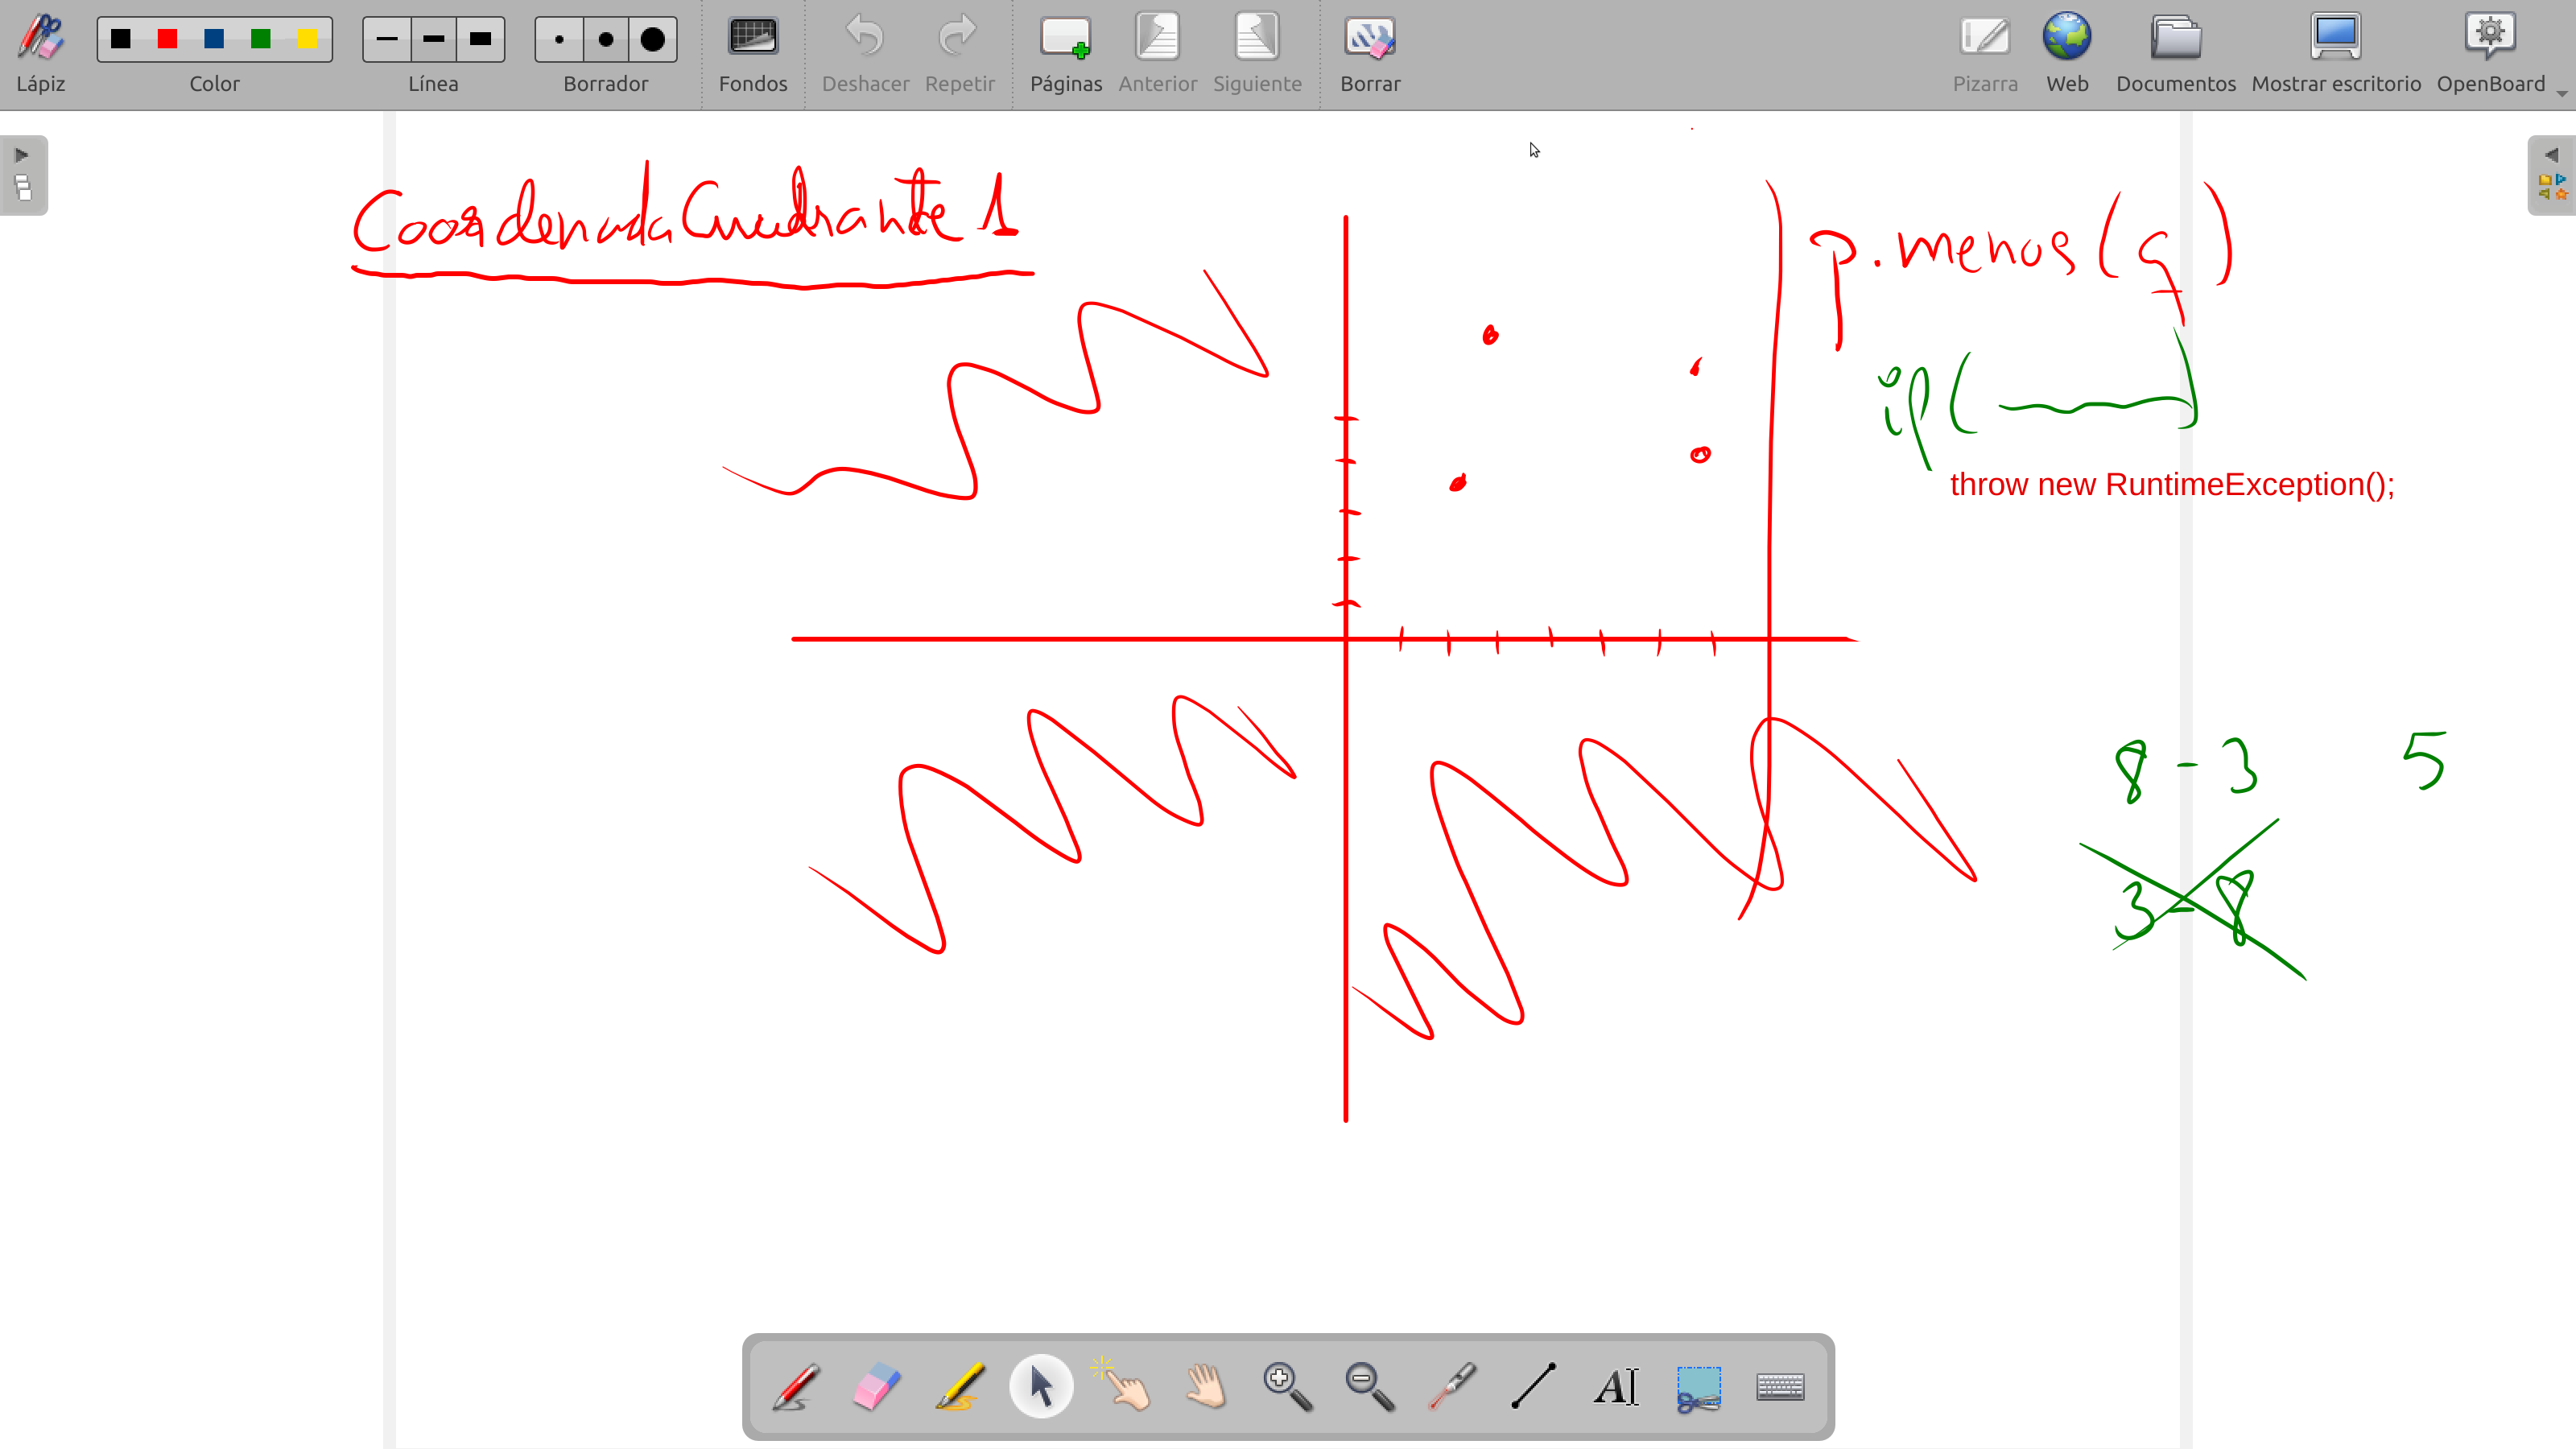 Lápiz Color Línea Borrador Fondos Deshacer Repetir Páginas Anterior Siguiente Borrar Pizarra Web Documentos Mostrar escritorio OpenBoard
CoordenadaCuadrante1
p.menos(q)
if(
throw new RuntimeException();
8-3 5
3-8